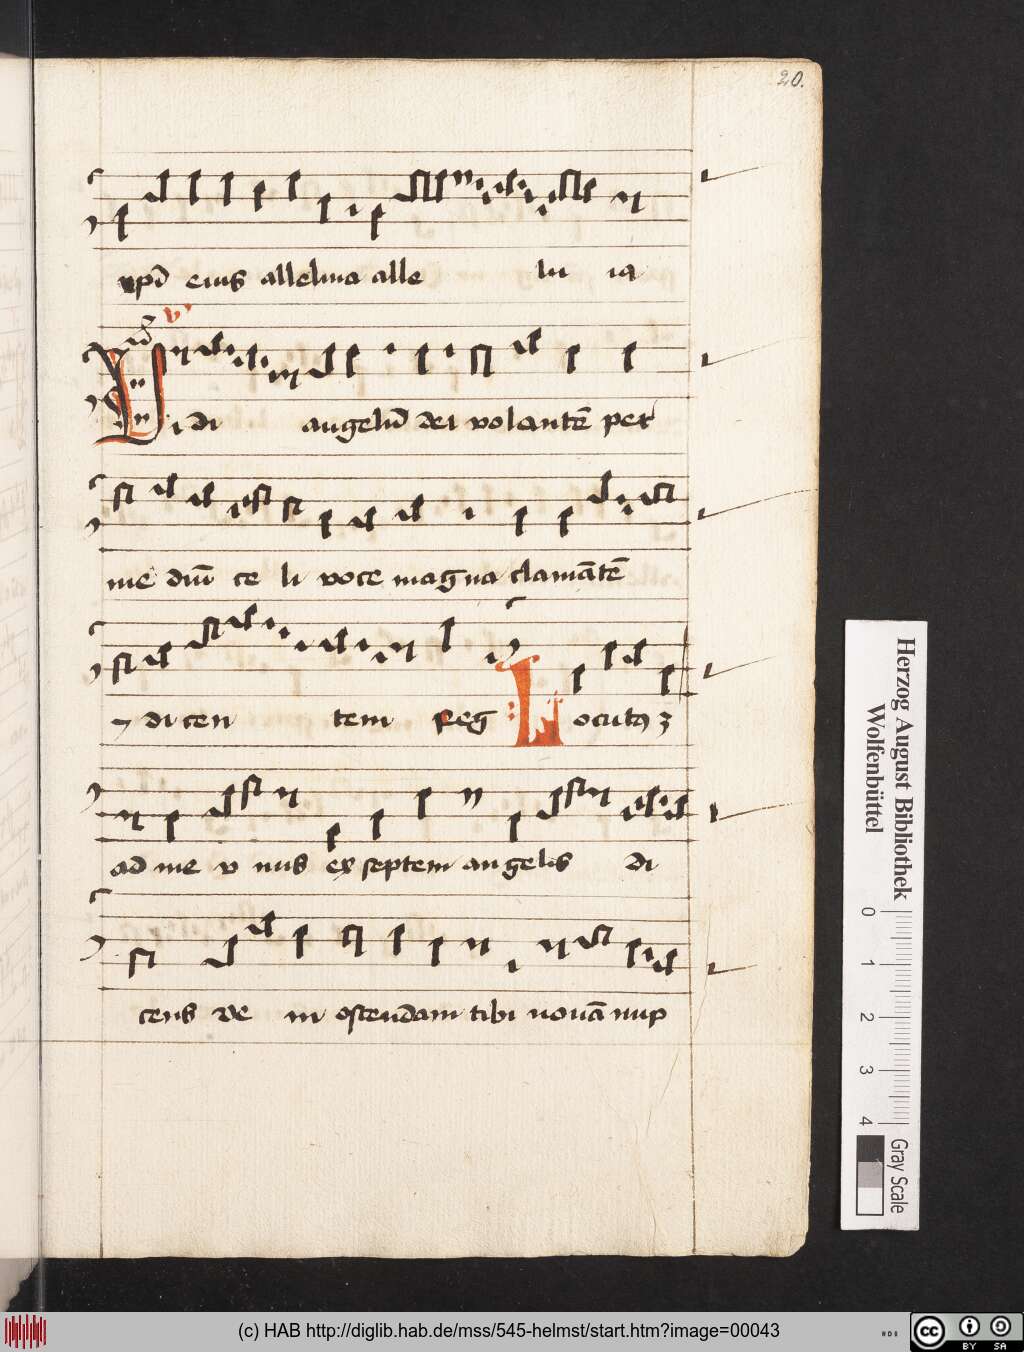 20.
eius alleluia alle lu ia
Vidi angelū dei volantē per
me diū ce li voce magna clamātē
di cen tem Reg Locutꝯ ꝫ
ad me v nus ex septem angelis di
cens ve ni ostendam tibi nouā nup
Herzog August Bibliothek
Wolfenbüttel
0 1 2 3 4
Gray Scale
(c) HAB http://diglib.hab.de/mss/545-helmst/start.htm?image=00043
cc BY SA